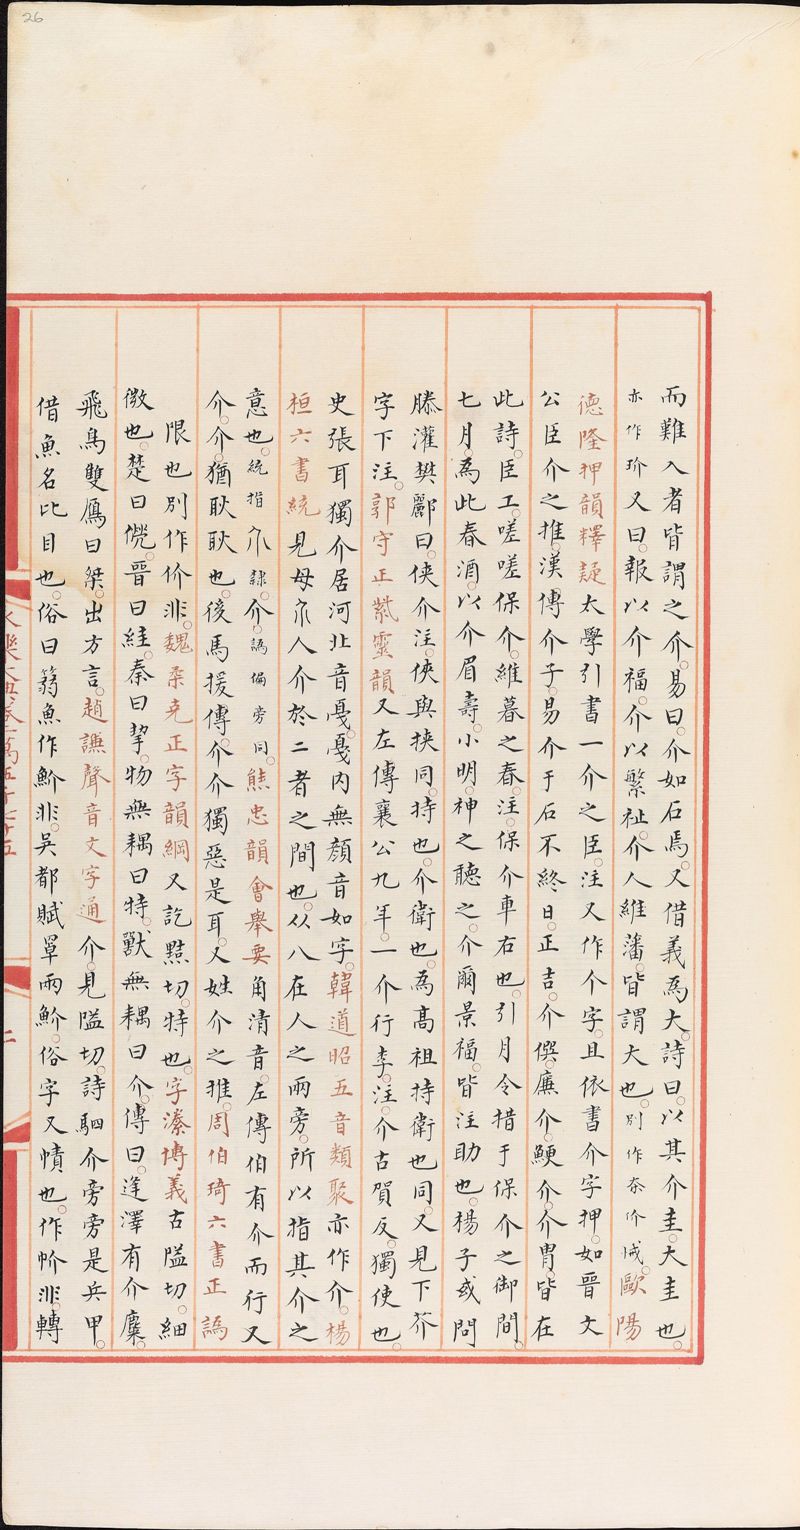 26
而難入者皆謂之介。易曰。介如石焉。又借義為大。詩曰。以其介圭。大圭也。
亦作玠又曰。報以介福。介以繁祉。介人維藩。皆謂大也。別作夰价悈。歐陽
德隆押韻釋疑太學引書一介之臣。注又作个字。且依書介字押。如晉文
公臣介之推。漢傅介子。易介于石不終日。正吉。介僎。廉介。鯁介。介胄。皆在
此詩。臣工。嗟嗟保介。維暮之春。注。保介車右也。引月令措于保介之御間。
七月。為此春酒。以介眉壽。小明。神之聽之。介爾景福。皆注助也。楊子或問
滕灌樊酈曰。俠介注。俠與挾同。持也。介衛也。為高祖持衛也同。又見下芥
字下注。郭守正紫雲韻又左傳襄公九年。一介行李。注。介古賀反。獨使也。
史張耳獨介居河北音戞。戞內無顏音如字。韓道昭五音類聚亦作介。楊
桓六書統見母𠆲人介於二者之間也。从八在人之兩旁。所以指其介之
意也。統指𠆲隸。介。譌偏旁同。熊忠韻會舉要角清音。左傳伯有介而行又
介。介。猶耿耿也。後馬援傳。介介獨惡是耳。又姓介之推。周伯琦六書正譌
限也別作价非。魏柔克正字韻綱又訖黠切。特也。字溱博義古隘切。細
微也。楚曰㒯。晉曰絓。秦曰挈。物無耦曰特。獸無耦曰介。傳曰。逢澤有介麋。
飛鳥雙鴈曰椉。出方言。趙謙聲音文字通介。見隘切。詩駟介旁旁是兵甲。
借魚名比目也。俗曰篛魚作魪非。吳都賦罩兩魪。俗字又幘也。作㡏非。轉
永樂大典卷一萬五千七十五